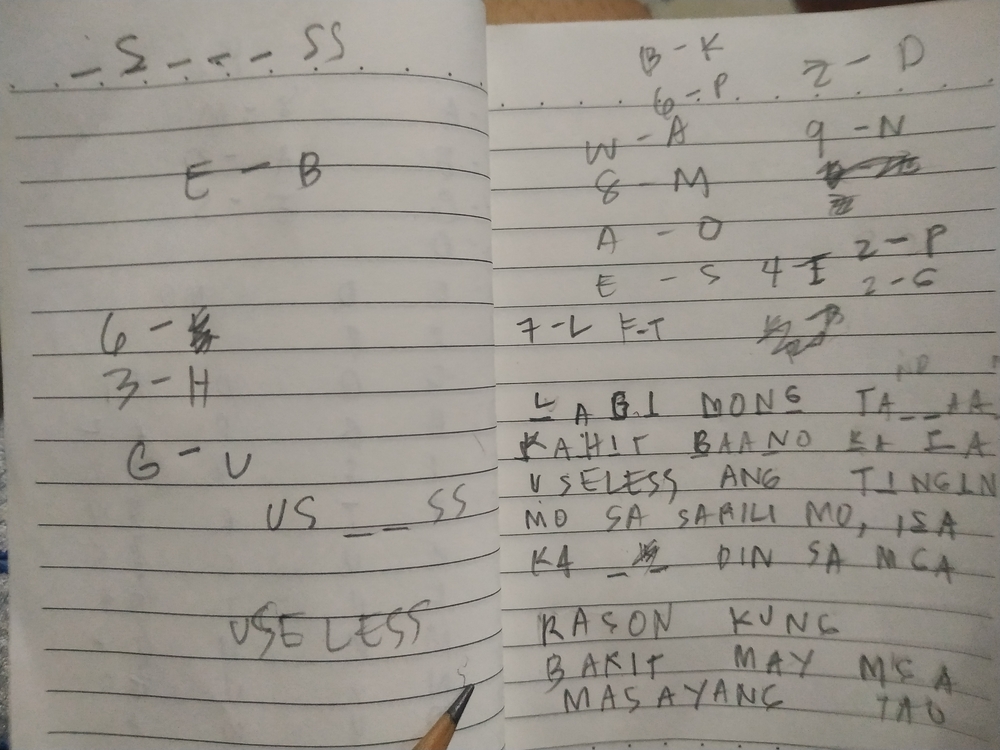 _ S _ _ _ SS
E - B
6 -
3 - H
G - U
US _ _ SS
USELESS
B - K
6 - P
2 - D
W - A
9 - N
8 - M
A - O
2 - P
E - S
4 - I
2 - G
7 - L
F - T
LAGI MONG TA_ _
KAHIT BAANO KA
USELESS ANG TINGIN
MO SA SARILI MO, ISA
KA _ _ DIN SA MGA
RASON KUNG
BAKIT MAY MGA
MASAYANG TAO